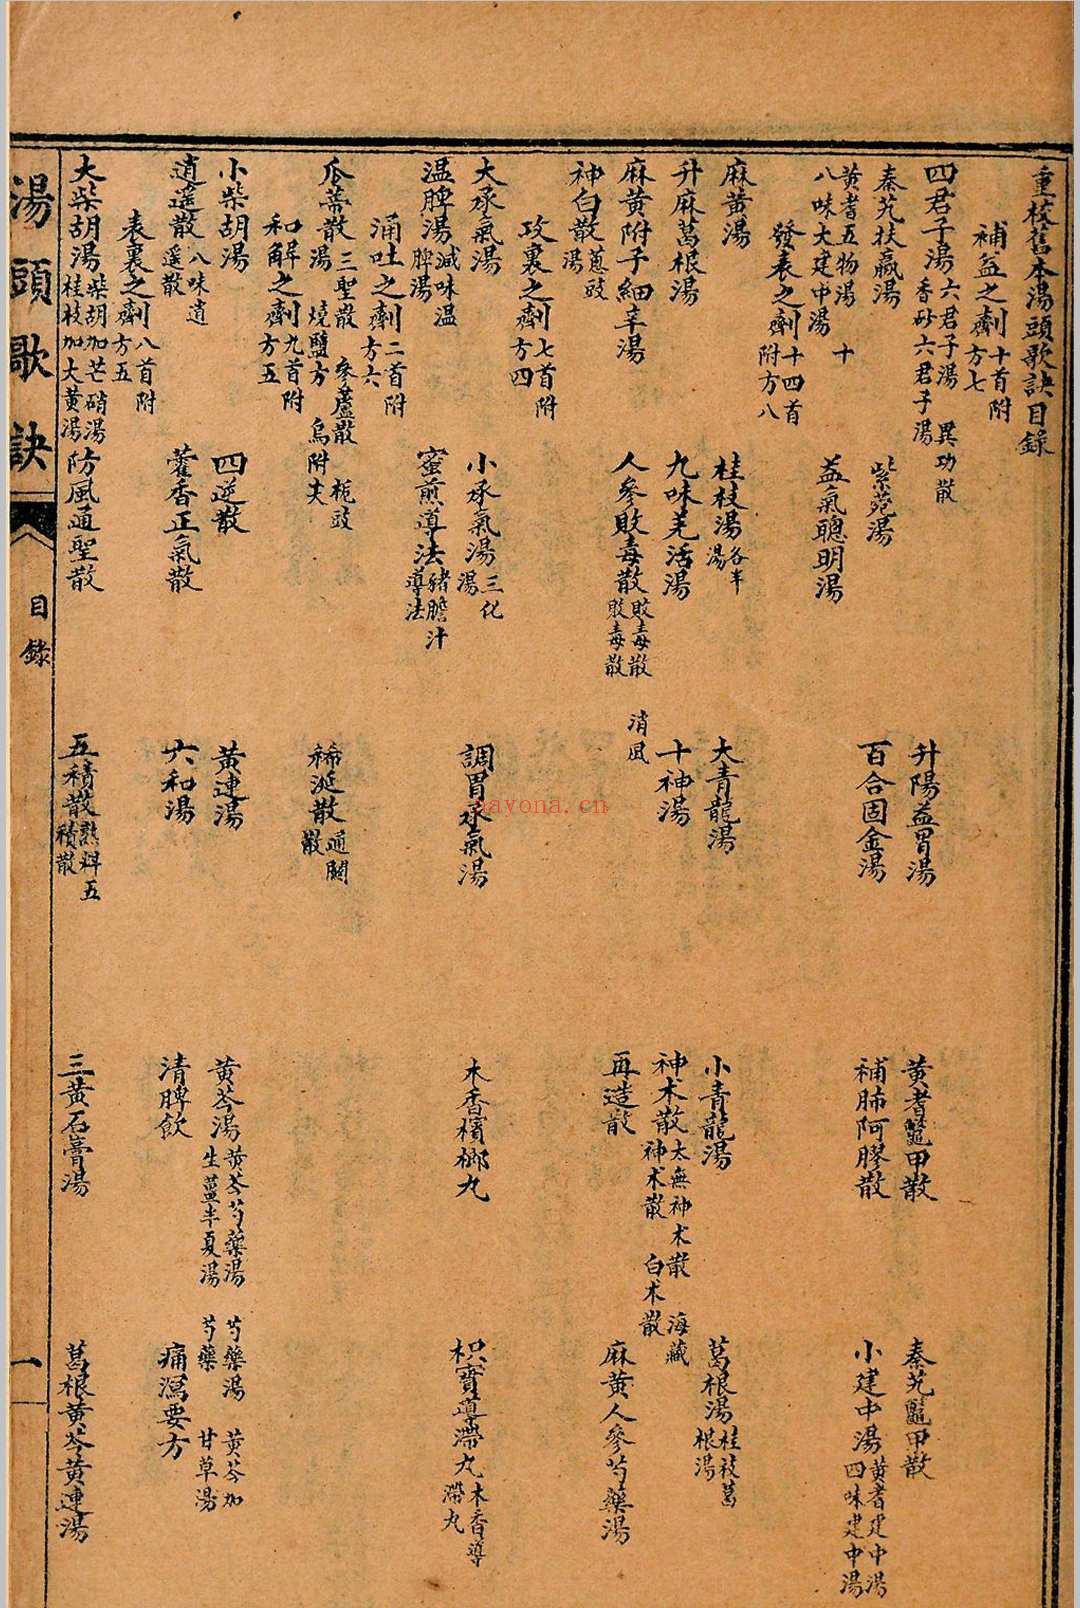 重校舊本湯頭歌訣目錄
補益之劑十首附方七
四君子湯六君子湯 異功散 香砂六君子湯 升陽益胃湯 黃耆鼈甲散 秦艽鼈甲散
秦艽扶羸湯 紫菀湯 百合固金湯 補肺阿膠散 小建中湯黃耆建中湯 四味建中湯
黃耆五物湯 十八味大建中湯 益氣聰明湯
發表之劑十四首附方八
麻黃湯 桂枝湯各半湯 大青龍湯 小青龍湯 葛根湯桂枝葛根湯
升麻葛根湯 九味羌活湯 十神湯 神术散太無神术散 海藏神术散 白术散
麻黃附子細辛湯 人參敗毒散敗毒散 消風敗毒散 再造散 麻黃人參芍藥湯
神白散蔥豉湯
攻裏之劑七首附方四
大承氣湯 小承氣湯三化湯 調胃承氣湯 木香檳榔丸 枳實導滯丸木香導滯丸
温脾湯減味温脾湯 蜜煎導法豬膽汁導法
涌吐之劑二首附方六
瓜蒂散三聖散 參蘆散 梔豉湯 燒鹽方 烏附尖 稀涎散通關散
和解之劑九首附方五
小柴胡湯 四逆散 黃連湯 黃芩湯黃芩芍藥湯 芍藥湯 黃芩加生薑半夏湯 芍藥甘草湯
逍遥散八味逍遥散 藿香正氣散 六和湯 清脾飲 痛瀉要方
表裏之劑八首附方五
大柴胡湯柴胡加芒硝湯 桂枝加大黃湯 防風通聖散 五積散熟料五積散 三黃石膏湯 葛根黃芩黃連湯
湯頭歌訣 目錄 一
nayona.cn